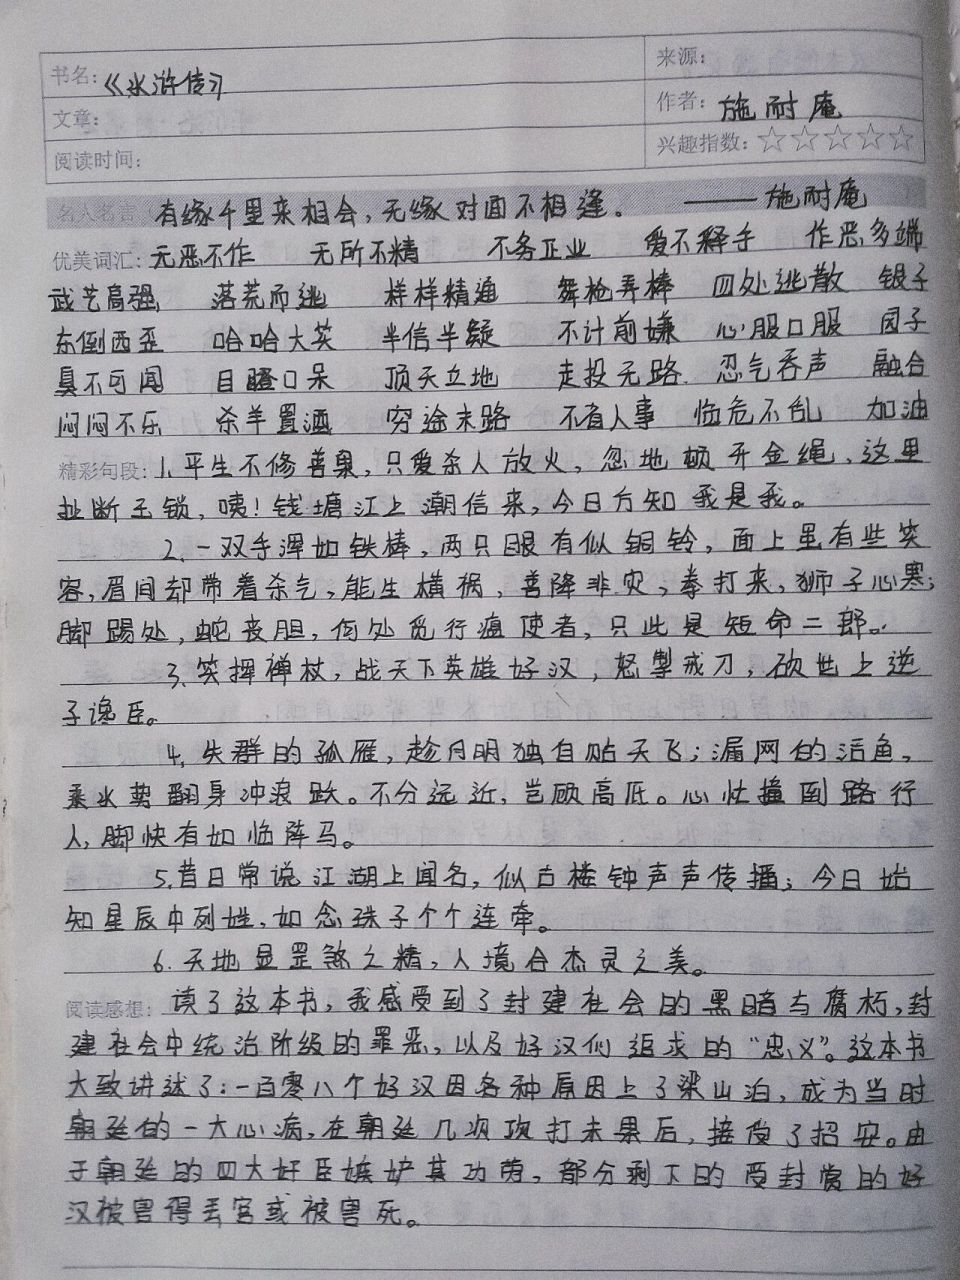 书名：《水浒传》
来源：
文章：
作者：施耐庵
阅读时间：
兴趣指数：☆☆☆☆☆
名人名言 有缘千里来相会，无缘对面不相逢。 ——施耐庵
优美词汇：无恶不作 无所不精 不务正业 爱不释手 作恶多端
武艺高强 落荒而逃 样样精通 舞枪弄棒 四处逃散 银子
东倒西歪 哈哈大笑 半信半疑 不计前嫌 心服口服 园子
臭不可闻 目瞪口呆 顶天立地 走投无路 忍气吞声 融合
闷闷不乐 杀羊置酒 穷途末路 不省人事 临危不乱 加油
精彩句段：1.平生不修善果，只爱杀人放火，忽地顿开金绳，这里
扯断玉锁，咦！钱塘江上潮信来，今日方知我是我。
2.一双手浑如铁棒，两只眼有似铜铃，面上虽有些笑
容，眉间却带着杀气，能生横祸，善降非灾，拳打来，狮子心寒；
脚踢处，蛇丧胆，何处觅行瘟使者，只此是短命二郎。
3.笑挥禅杖，战天下英雄好汉，怒掣戒刀，砍世上逆
子谗臣。
4.失群的孤雁，趁月明独自贴天飞；漏网的活鱼，
乘水势翻身冲浪跃。不分远近，岂顾高低。心忙撞到路行
人，脚快有如临阵马。
5.昔日常说江湖上闻名，似古楼钟声声传播；今日始
知星辰中列姓，如念珠子个个连牵。
6.天地显罡煞之精，人境合杰灵之美。
阅读感想：读了这本书，我感受到了封建社会的黑暗与腐朽，封
建社会中统治阶级的罪恶，以及好汉们追求的“忠义”。这本书
大致讲述了：一百零八个好汉因各种原因上了梁山泊，成为当时
朝廷的一大心病，在朝廷几次攻打未果后，接受了招安。由
于朝廷的四大奸臣嫉妒其功劳，部分剩下的受封赏的好
汉被害得丢官或被害死。